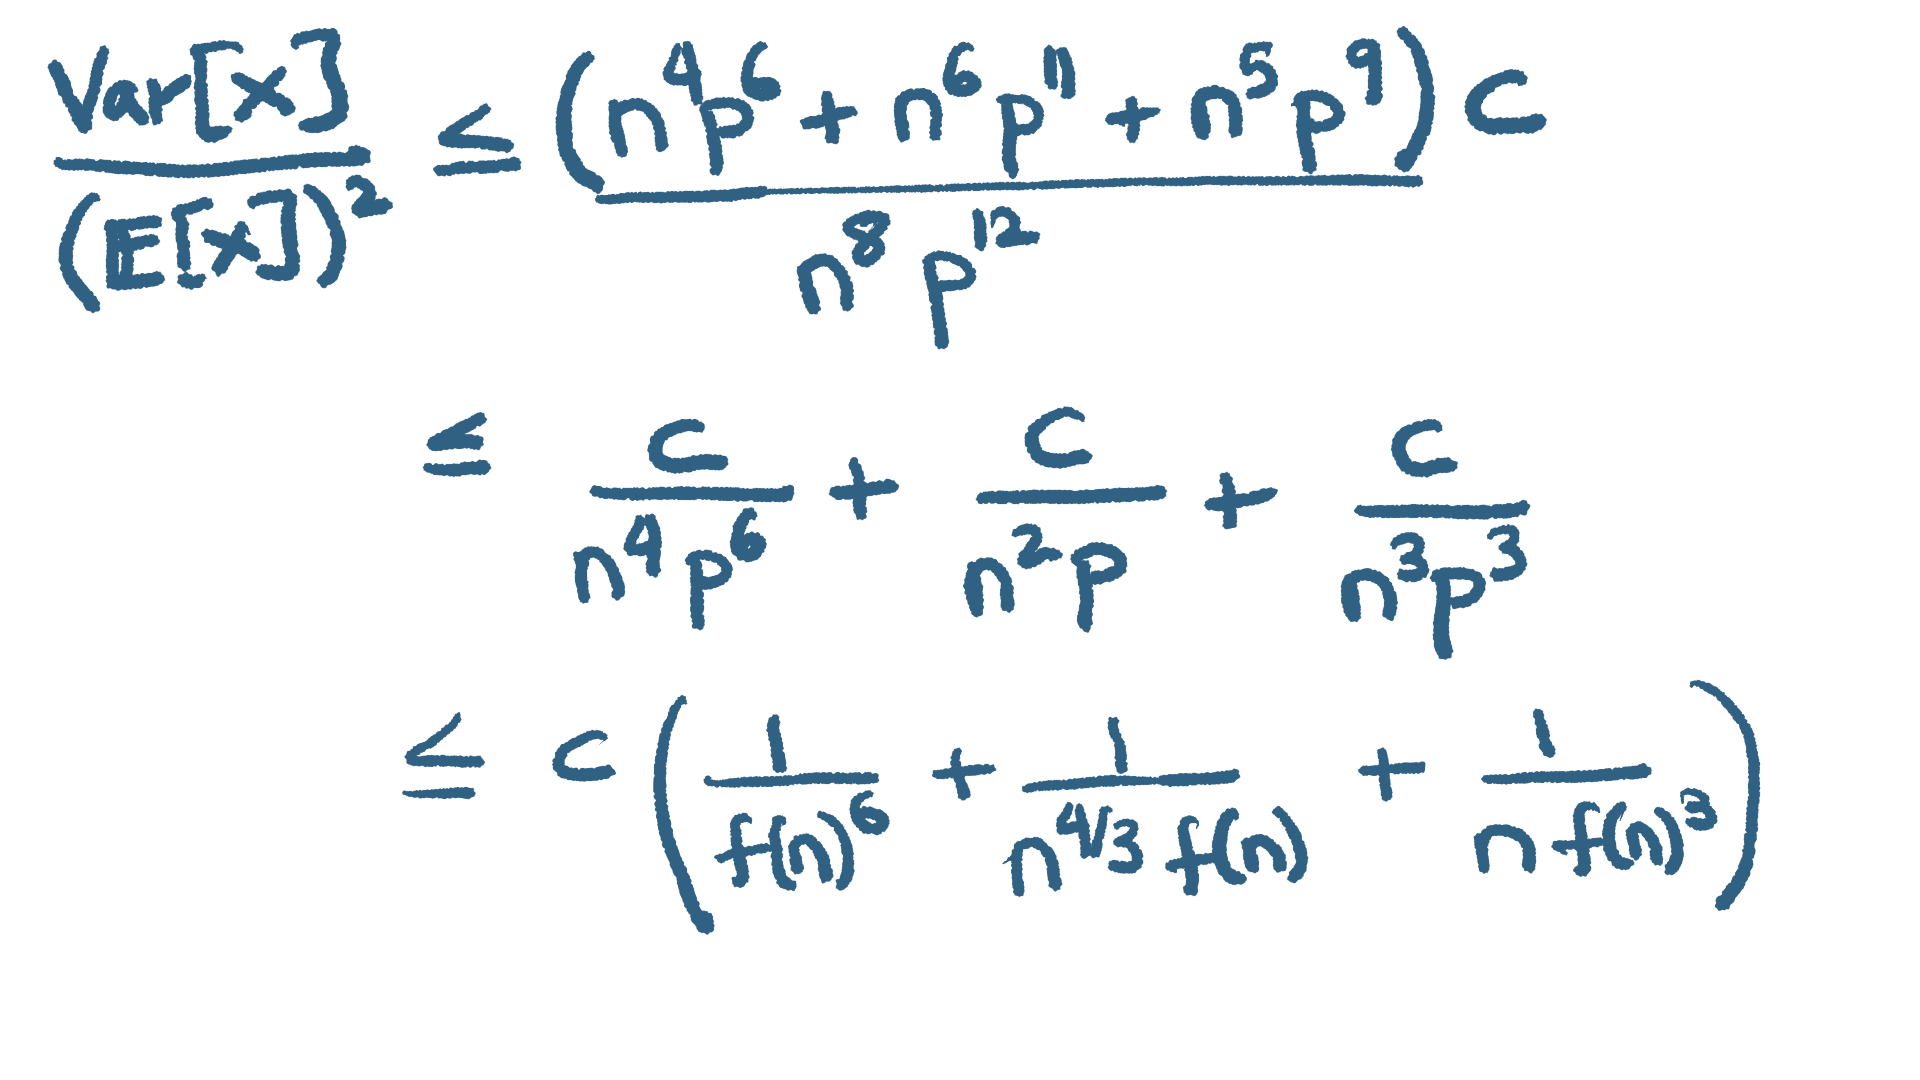 Var[x] / (E[x])² ≤ (n⁴p⁶ + n⁶p¹¹ + n⁵p⁹) C / n⁸p¹²
≤ C / n⁴p⁶ + C / n²p + C / n³p³
≤ C ( 1 / f(n)⁶ + 1 / n^{4/3} f(n) + 1 / n f(n)³ )